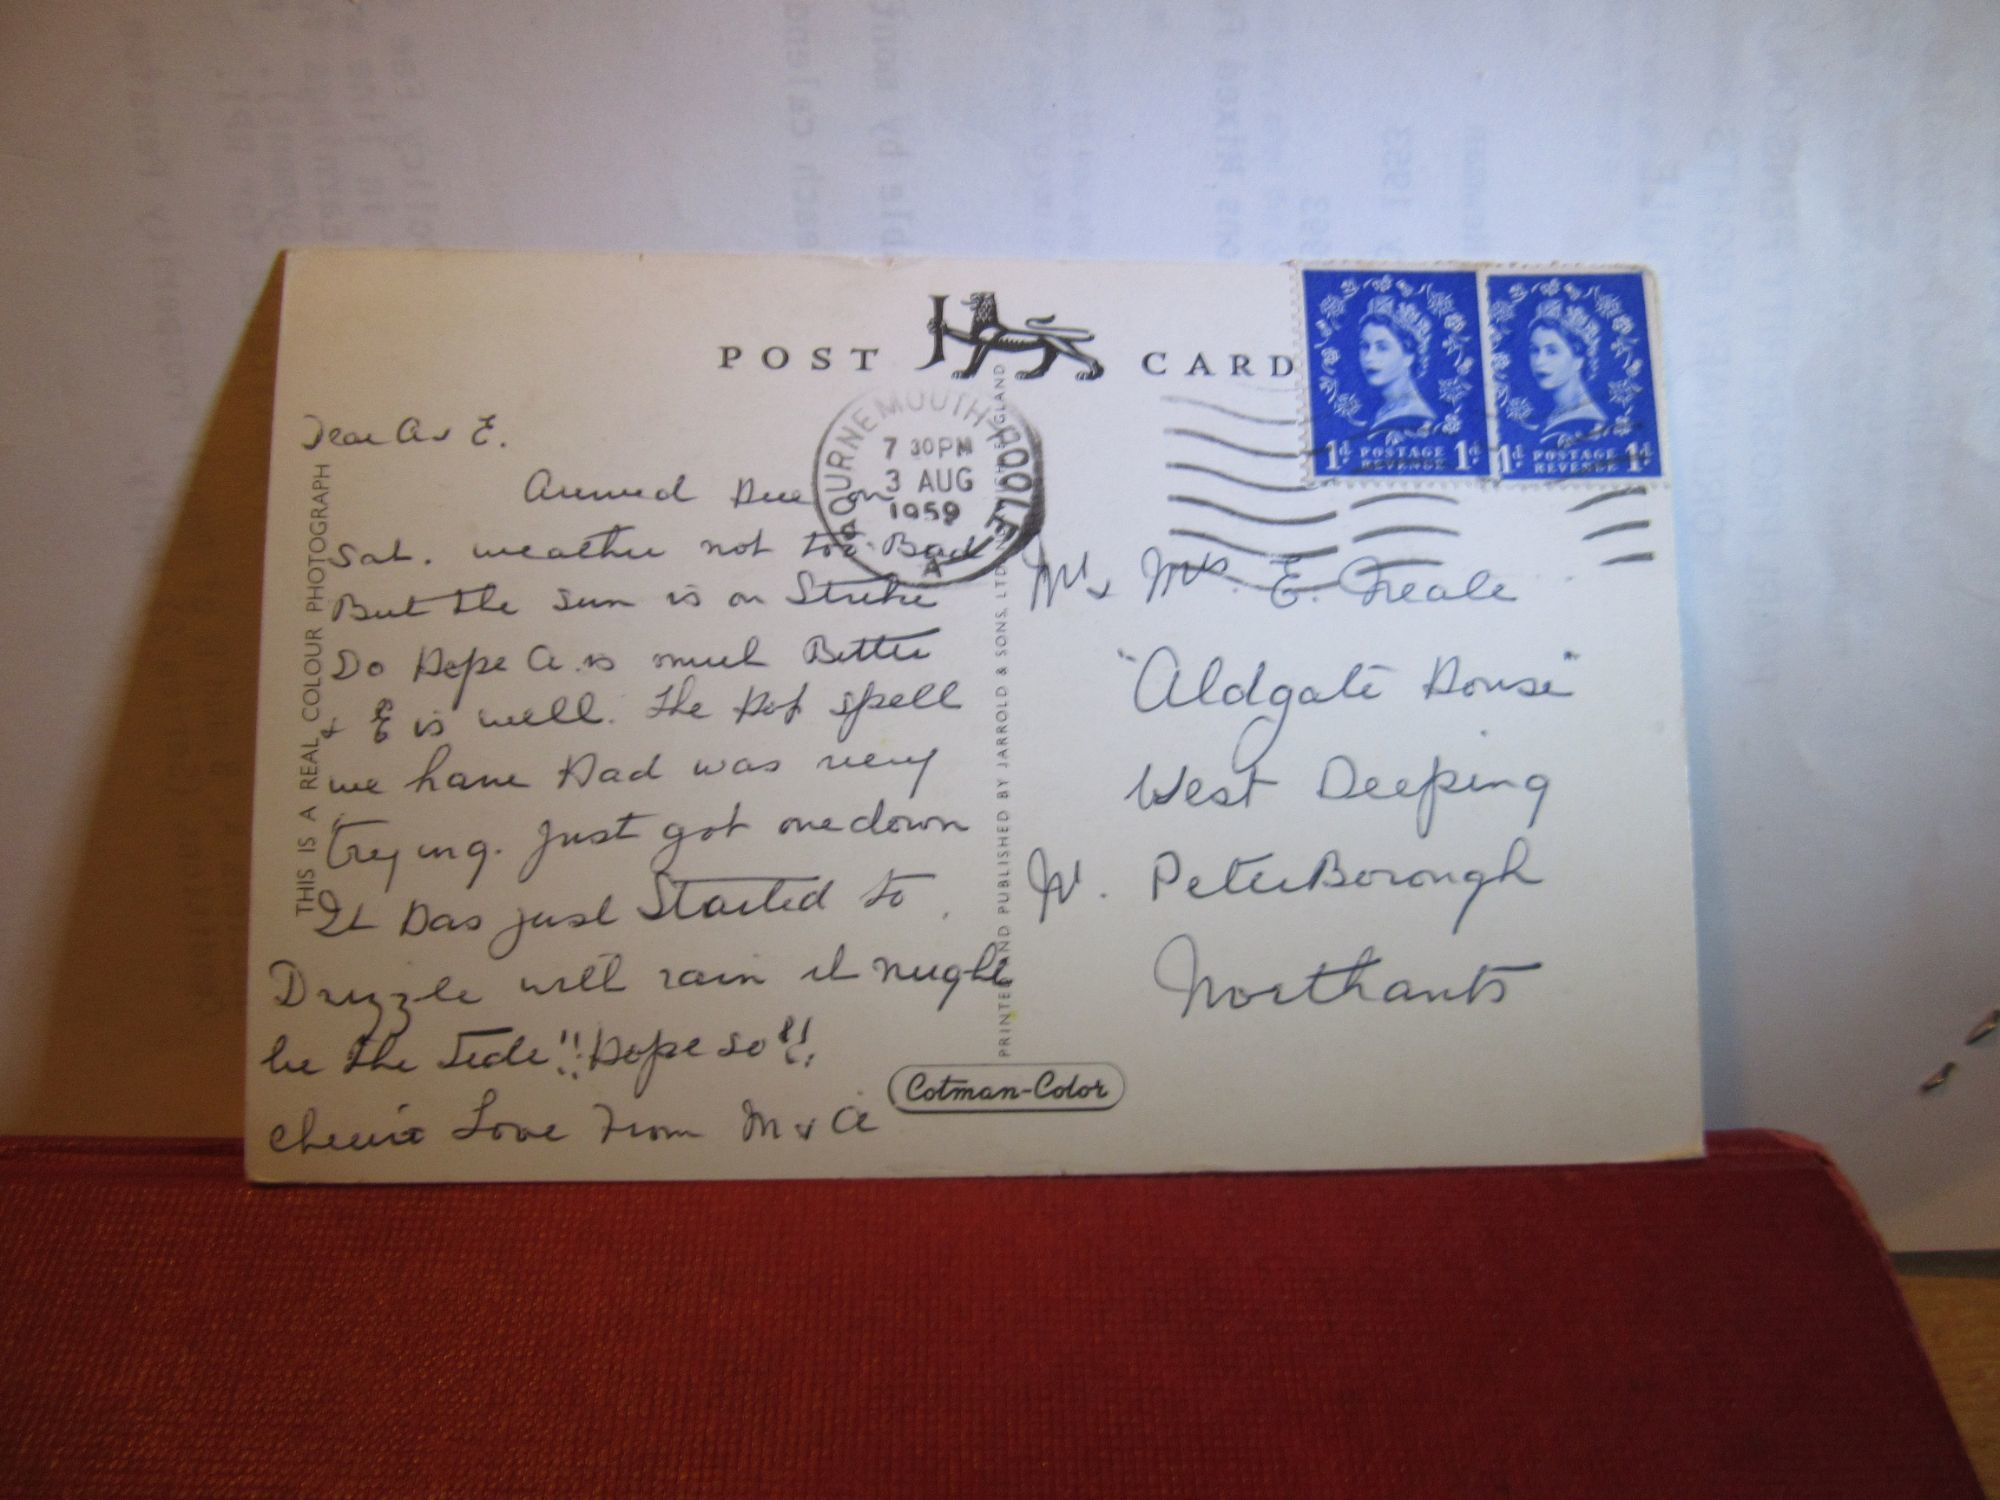 POST CARD
BOURNEMOUTH-POOLE
7 30PM
3 AUG
1959
A
1d POSTAGE REVENUE 1d
1d POSTAGE REVENUE 1d
THIS IS A REAL COLOUR PHOTOGRAPH
Dear A & E.
Arrived Here on
Sat. weather not too Bad
But the Sun is on Strike
Do Hope A. is much Better
& E is well. The Hot spell
we have Had was very
trying. Just got one down
It Has just Started to
Drizzle will rain it might
be the Tide!! Hope so!!
cheerio Love From M & A
PRINTED AND PUBLISHED BY JARROLD & SONS, LTD. ENGLAND
Mr & Mrs. E. Neale
"Aldgate House"
West Deeping
Nr. PeterBorough
Northants
Cotman-Color